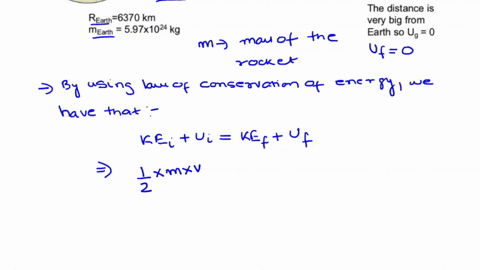 R_Earth=6370 km
m_Earth = 5.97x10²⁴ kg
The distance is
very big from
Earth so U_g = 0
U_f = 0
m → mass of the
rocket
→ By using law of conservation of energy, we
have that :-
KE_i + U_i = KE_f + U_f
⇒ 1/2 × m × v